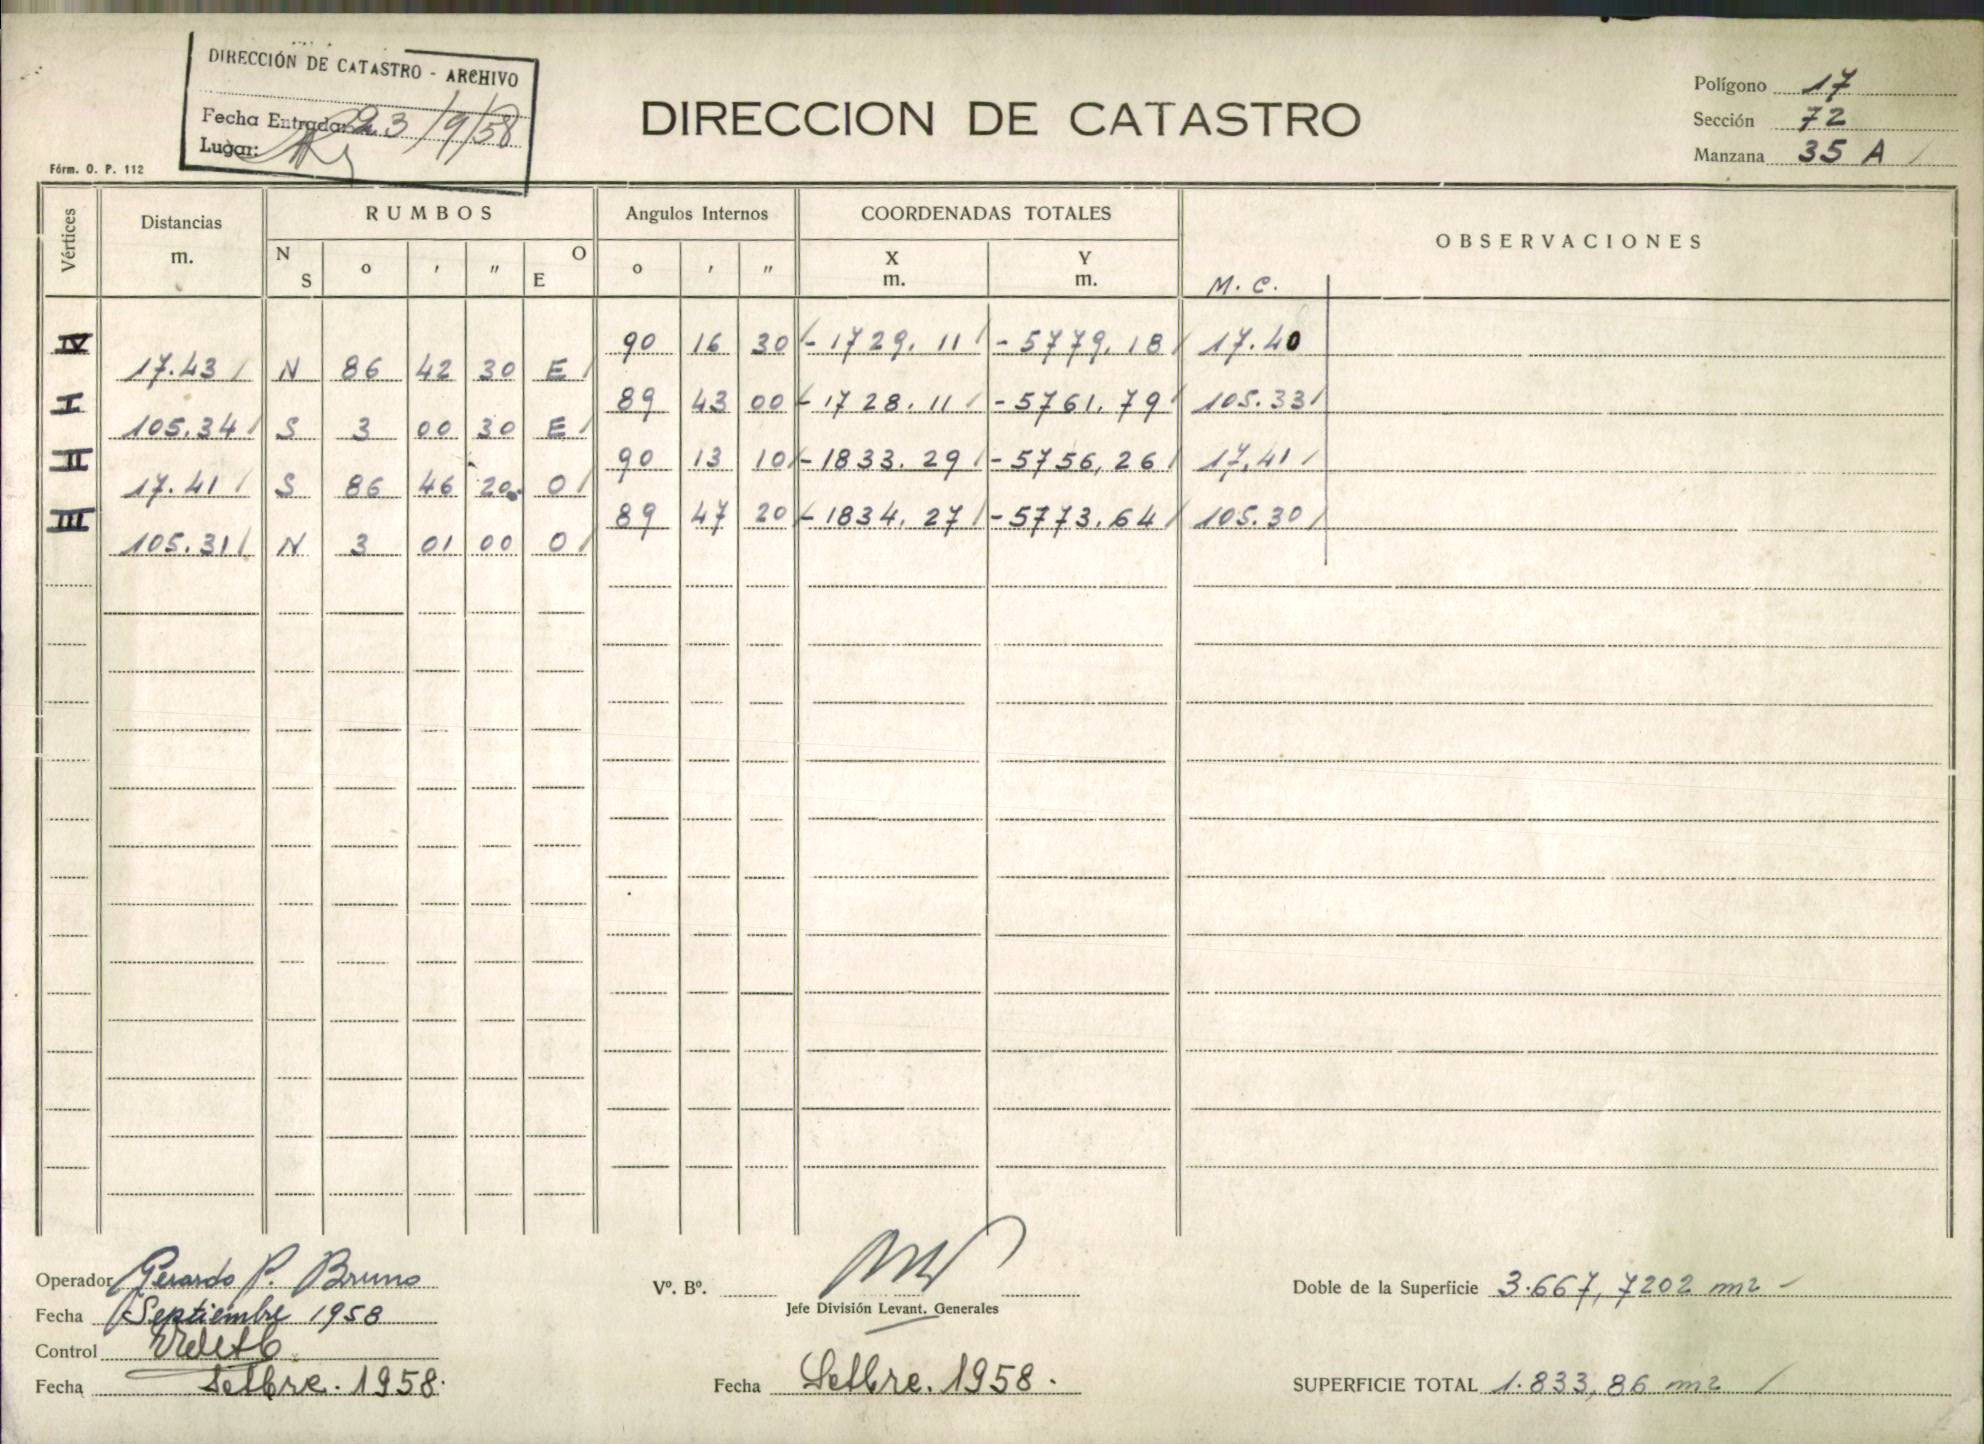 DIRECCIÓN DE CATASTRO - ARCHIVO
Fecha Entrada: 23/9/58
Lugar:
Fórm. O. P. 112
DIRECCION DE CATASTRO
Polígono 17
Sección 72
Manzana 35 A
Vértices Distancias m. RUMBOS Angulos Internos COORDENADAS TOTALES OBSERVACIONES
N S o ' " O E o ' " X m. Y m. M. C.
IV 90 16 30 - 1729.11 - 5779.18 17.40
17.43 N 86 42 30 E
I 89 43 00 - 1728.11 - 5761.79 105.33
105.34 S 3 00 30 E
II 90 13 10 - 1833.29 - 5756,26 17,41
17.41 S 86 46 20 O
III 89 47 20 - 1834.27 - 5773.64 105.30
105.31 N 3 01 00 O
Operador Gerardo P. Bruno
Fecha Septiembre 1958
Control
Fecha Setbre. 1958.
Vº. Bº.
Jefe División Levant. Generales
Fecha Setbre. 1958.
Doble de la Superficie 3.667,7202 m2 -
SUPERFICIE TOTAL 1.833,86 m2